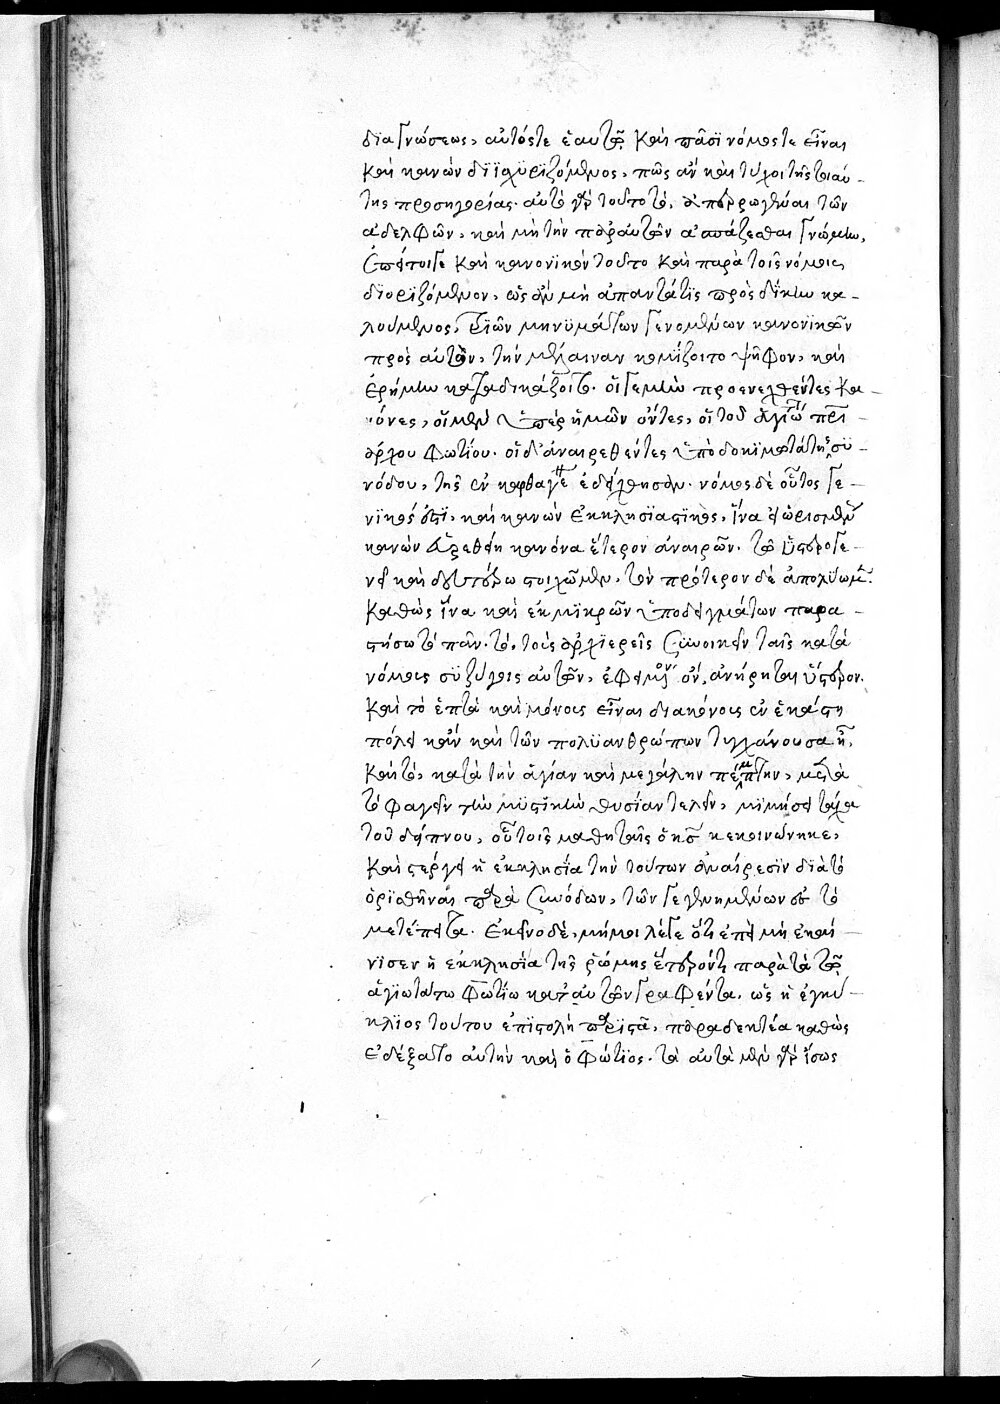 διαγνώσεως, αὐτόστε ἑαυτῷ καὶ πᾶσι νόμος τε εἶναι
καὶ κανὼν διϊσχυριζόμενος, πῶς ἂν καὶ τύχοι τῆς τοιαύ-
της προσηγορίας. αὐτὸ γὰρ τοῦτο τὸ, ἀπερρωγέναι τῶν
ἀδελφῶν, καὶ μὴ τὴν παρ' αὐτῶν ἀσπάζεσθαι γνώμην,
καὶ κανονικὸν τοῦτο καὶ παρὰ τοῖς νόμοις
διοριζόμενον, ὡς ἂν μὴ ἀπαντά τις πρὸς δίκην κα-
λούμενος, τριῶν μηνυμάτων γενομένων κανονικῶν
πρὸς αὐτὸν, τὴν μέλαιναν κομίζοιτο ψῆφον, καὶ
ἐρήμην καταδικάζοιτο. οἵ γε μὴν προενεχθέντες κα-
νόνες, οἱ μὲν ὑπὲρ ἡμῶν ὄντες, οἱ τοῦ ἁγίου πατρι-
άρχου φωτίου. οἱ δ' ἀναιρεθέντες ὑπὸ δοκιμωτάτης συ-
νόδου, τῆς ἐν καρθαγένῃ ἐδείχθησαν. νόμος δὲ οὗτος γε-
νικός ἐστι, καὶ κανὼν ἐκκλησιαστικὸς, ἵνα
κανὼν εὑρεθείη κανόνα ἕτερον ἀναιρῶν. τῷ ὑστερογε-
νεῖ καὶ δευτέρῳ στοιχῶμεν, τὸν πρότερον δὲ ἀπολύωμεν.
καθὼς ἵνα καὶ ἐκ μικρῶν ὑποδειγμάτων παρα-
στήσω τὸ πᾶν. τὸ, τοὺς ἀρχιερεῖς συνοικεῖν ταῖς κατὰ
νόμους συζύγοις αὐτῶν, ἐφειμένον ὂν, ἀνῄρηται ὕστερον.
καὶ τὸ ἑπτὰ καὶ μόνους εἶναι διακόνους ἐν ἑκάστῃ
πόλει κἂν καὶ τῶν πολυανθρώπων τυγχάνουσα ᾖ,
καὶ τὸ, κατὰ τὴν ἁγίαν καὶ μεγάλην πέμπτην, μετὰ
τὸ φαγεῖν τὴν μυστικὴν θυσίαν τελεῖν, μιμήσει τάχα
τοῦ δείπνου, οὗ τοῖς μαθηταῖς ὁ κς κεκοινώνηκε,
καὶ στέργει ἡ ἐκκλησία τὴν τούτων ἀναίρεσιν διὰ τὸ
ὁρισθῆναι παρὰ συνόδων, τῶν γεγενημένων ἐς τὸ
μετέπειτα. ἐκεῖνο δὲ, μή μοι λέγε ὅτι ἐπεὶ μὴ ἐκαί-
νισεν ἡ ἐκκλησία τῆς ῥώμης ἕτερόν τι παρὰ τὰ τῷ
ἁγιωτάτῳ φωτίῳ κατ' αὐτῶν γραφέντα. ὡς ἡ ἐγκύ-
κλιος τούτου ἐπιστολὴ παριστᾶ, παραδεκτέα καθὼς
ἐδέξατο αὐτὴν καὶ ὁ φώτιος. τὰ αὐτὰ μὲν γὰρ ἴσως